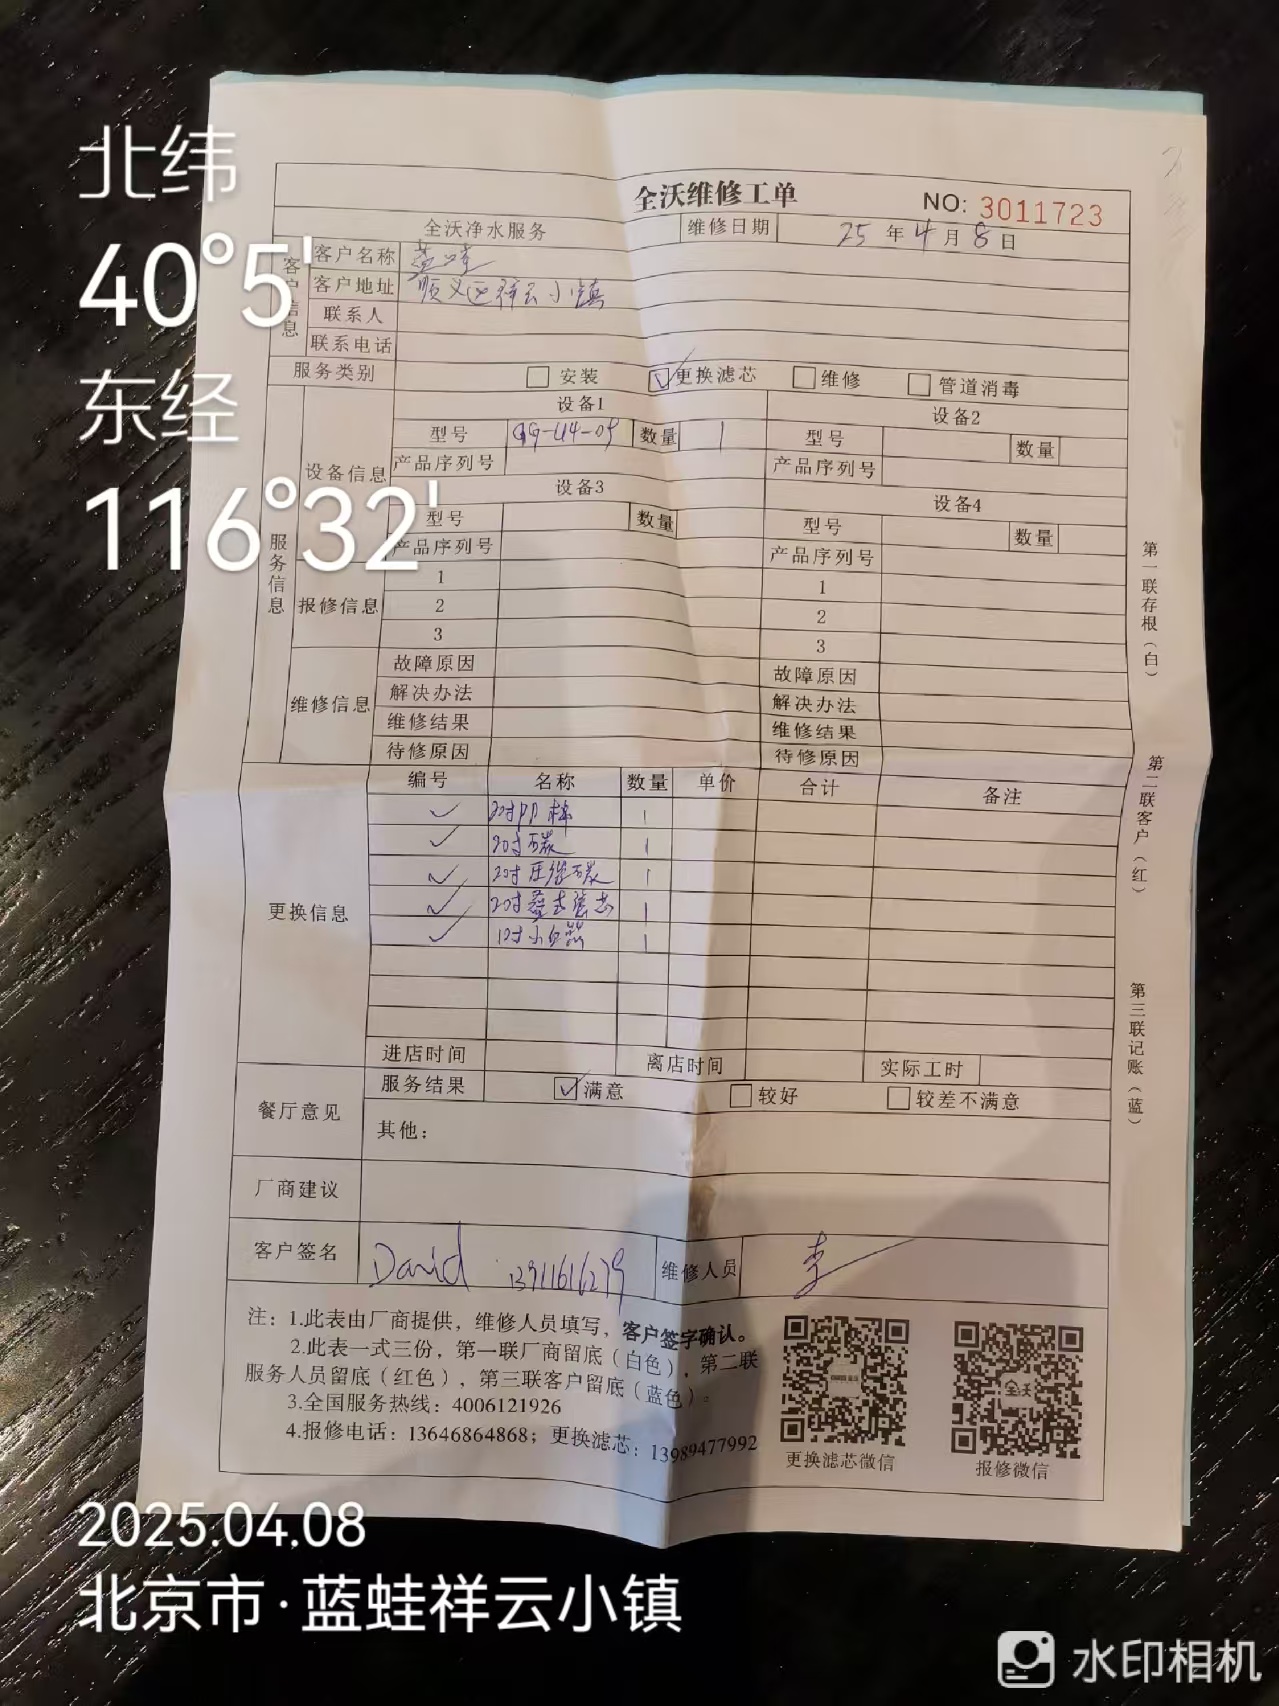 北纬
40°5'
东经
116°32'
全沃维修工单
NO: 3011723
全沃净水服务 维修日期 25 年 4 月 8 日
客户信息
客户名称 蓝蛙
客户地址 顺义区祥云小镇
联系人
联系电话
服务类别 安装 更换滤芯 维修 管道消毒
服务信息
设备信息
设备1 设备2
型号 数量 1 型号 数量
产品序列号 产品序列号
设备3 设备4
型号 数量 型号 数量
产品序列号 产品序列号
报修信息
1 1
2 2
3 3
维修信息
故障原因 故障原因
解决办法 解决办法
维修结果 维修结果
待修原因 待修原因
更换信息
编号 名称 数量 单价 合计 备注
20寸PP棉 1
20寸碳 1
20寸压缩碳 1
20寸叠式滤芯 1
10寸 1
进店时间 离店时间 实际工时
餐厅意见
服务结果 满意 较好 较差不满意
其他：
厂商建议
客户签名 David 13911616279 维修人员 李
注：1.此表由厂商提供，维修人员填写，客户签字确认。
2.此表一式三份，第一联厂商留底（白色），第二联
服务人员留底（红色），第三联客户留底（蓝色）。
3.全国服务热线：4006121926
4.报修电话：13646864868；更换滤芯：13989477992
全沃
更换滤芯微信 报修微信
第一联存根（白）
第二联客户（红）
第三联记账（蓝）
2025.04.08
北京市·蓝蛙祥云小镇
水印相机